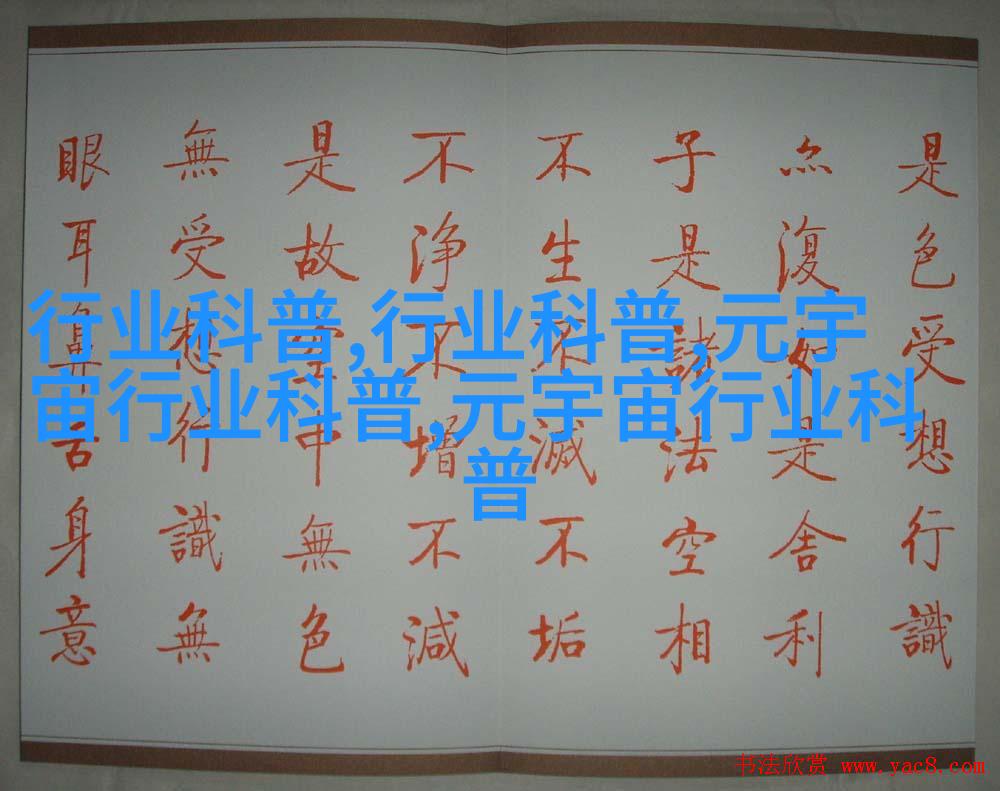 是色受想行識
亦復如是舍利
子是諸法空相
不生不滅不垢
不浄不增不減
是故空中無色
無受想行識無
眼耳鼻舌身意
行业科普,行业科普,元宇
宙行业科普,元宇宙行业科
普
书法欣赏 www.yac8.com